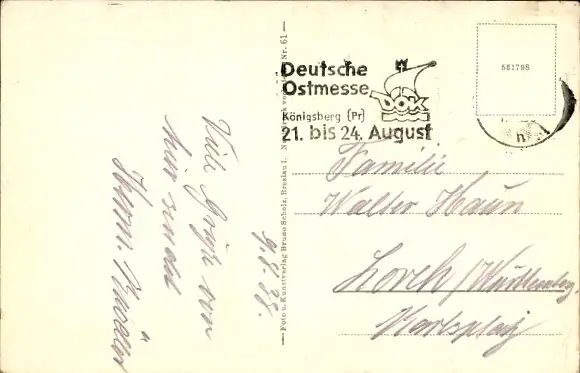 Deutsche
Ostmesse
DOK
Königsberg (Pr)
21. bis 24. August
561798
Familie
Walter Haun
Lorch/Württemberg.
Karlsplatz
9.8.38.
Viele Grüße von
hier sendet
Herm.
Foto u. Kunstverlag Bruno Scholz, Breslau 1. Nachdruck verboten Nr. 61